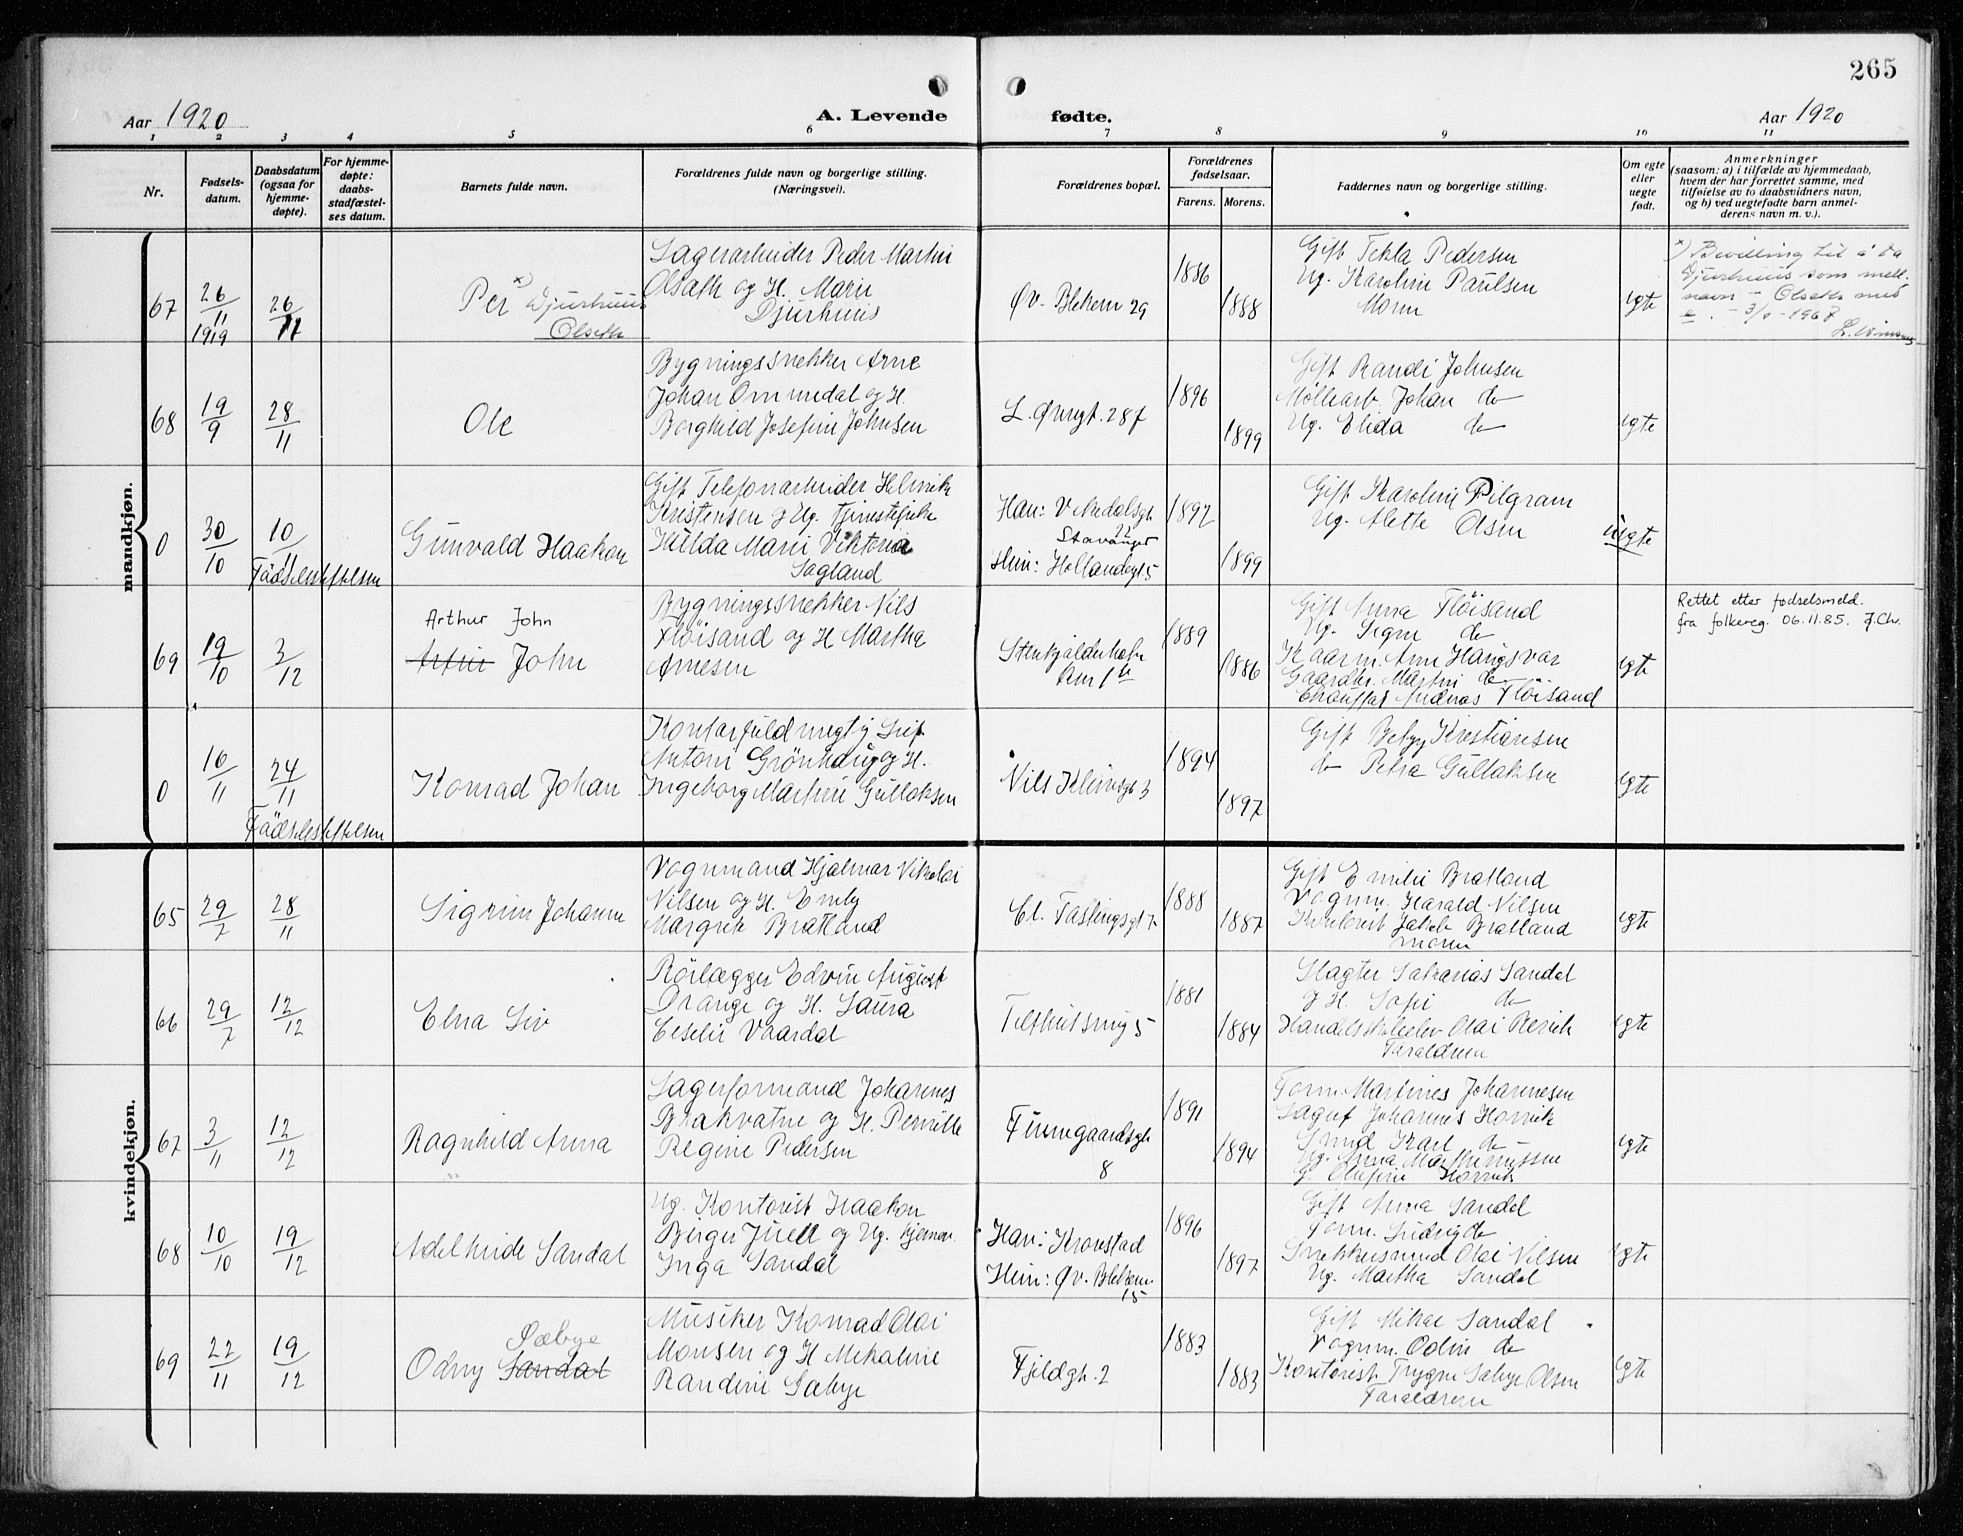 265
Aar 1920 A. Levende fødte. Aar 1920
1 2 3 4 5 6 7 8 9 10 11
Nr.
Fødsels-
datum.
Daabsdatum
(ogsaa for
hjemme-
døpte).
For hjemme-
døpte:
daabs-
stadfæstel-
ses datum.
Barnets fulde navn.
Forældrenes fulde navn og borgerlige stilling.
(Næringsvei).
Forældrenes bopæl.
Forældrenes
fødselsaar.
Farens. Morens.
Faddernes navn og borgerlige stilling.
Om egte
eller
uegte
født.
Anmerkninger
(saasom: a) i tilfælde av hjemmedaab,
hvem der har forrettet samme, med
tilføielse av to daabsvidners navn,
og b) ved uegtefødte barn anmel-
derens navn m. v.).
mandkjøn.
67
26/11
1919
26/11
Per x) Djurhuus
Olseth
Lagerarbeider Peder Martin
Olseth og H. Marie
Djurhuus
Øv. Blekevn 29
1886
1888
Gift Tekla Pedersen
Ug. Karoline Paulsen
Moren
egte
x) Bevilling til å ta
Djurhuus som mell.
navn – Olseth med
e. – 3/ – 1967
68
19/9
28/11
Ole
Bygningssnekker Arne
Johan Ommedal og H.
Borghild Josefine Johnsen
L. Øvregt. 28
1896
1899
Gift Randi Johnsen
Møllearb. Johan do
Ug. Elida do
egte
0
30/10
10/11
Fødselsstiftelsen
Gunvald Haakon
Gift Telefonarbeider Helmik
Kristensen og Ug. Tjenestepike
Hulda Marie Viktoria
Sagland
Han: Vikedalsgt
22
Stavanger
Hun: Hollendergt 5
1892
1899
Gift Karoline Pilgram
Ug. Alette Olsen
uegte
69
19/10
3/12
Arthur John
John
Bygningssnekker Nils
Fløisand og H Martha
Arnesen
1889
1886
Gift Anna Fløisand
Ug. Signe do
Gaardbr. Martin do
Chauffør Andreas Fløisand
egte
Rettet etter fødselsmeld.
fra folkereg. 06.11.85. J.Chr.
0
16/11
24/11
Fødselsstiftelsen
Konrad Johan
Kontorfuldmegtig Leif
Antoni Grönhaug og H.
Ingeborg Martine Gullaksen
Nils Kleimsgt 3
1894
1897
Gift Betzy Kristiansen
do Petra Gullaksen
egte
kvindekjøn.
65
29/7
28/11
Sigrun Johanne
Vognmand Hjalmar Nikolai
Nilsen og H. Emily
Margrete Bratland
Cl. Fastingsgt 7
1888
1887
Gift Emilie Bratland
Vognm. Harald Nilsen
Kontorist Jakob Bratland
moren
egte
66
29/7
12/12
Elna Siv
Rörlægger Edvin August
Drange og H. Laura
Ceselie Vaardal
Tilfluktsveig 5
1881
1884
Slagter Sakarias Sandal
og H. Sofie do
Handelsskoleelev Olai
Foraldrene
egte
67
3/11
12/12
Ragnhild Anna
Lagerformand Johannes
Brakvatne og H. Pernille
Regine Pedersen
Finnegaardsgt
8
1891
1894
Form. Martines Johannesen
Lagerf Johannes Horvik
Smed Karl do
Ug. Anna
G. Olufine Horvik
egte
68
10/10
19/12
Adelheide Sandal
Ug. Kontorist Haakon
Birger Juell og Ug. hjemmev.
Inga Sandal
Han: Kronstad
Hun: Øv. Blekevn
15
1896
1897
Gift Anna Sandal
Form. Ludvig do
Snekkersvend Olai Nilsen
Ug. Martha Sandal
egte
69
22/11
19/12
Sæbye
Odny Sandal
Musiker Konrad Olai
Monsen og H Mikaline
Randine Sæbye
Fjeldgt. 2
1883
1883
Gift Mikal Sandal
Vognm. Odin do
Kontorist Trygve Sæbye Olsen
Foraldrene
egte